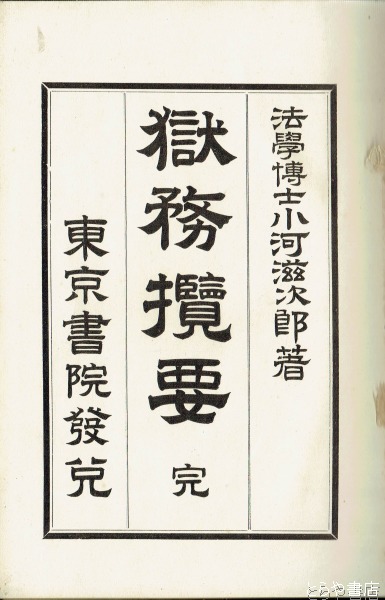 法學博士小河滋次郎著
獄務攬要
完
東京書院發兌
とらや書店